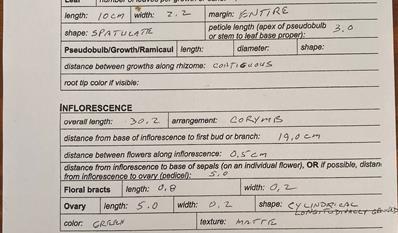 Leaf number of leaves per growth or cane:
length: 10cm width: 2.2 margin: ENTIRE
shape: SPATULATE petiole length (apex of pseudobulb or stem to leaf base proper): 3.0
Pseudobulb/Growth/Ramicaul length: diameter: shape:
distance between growths along rhizome: CONTIGUOUS
root tip color if visible:
INFLORESCENCE
overall length: 30.2 arrangement: CORYMB
distance from base of inflorescence to first bud or branch: 19.0cm
distance between flowers along inflorescence: 0.5cm
distance from inflorescence to base of sepals (on an individual flower), OR if possible, distan
from inflorescence to ovary (pedicel): 5.0
Floral bracts length: 0.8 width: 0.2
Ovary length: 5.0 width: 0.2 shape: CYLINDRICAL
LONGITUDINALLY GROOVED
color: GREEN texture: MATTE